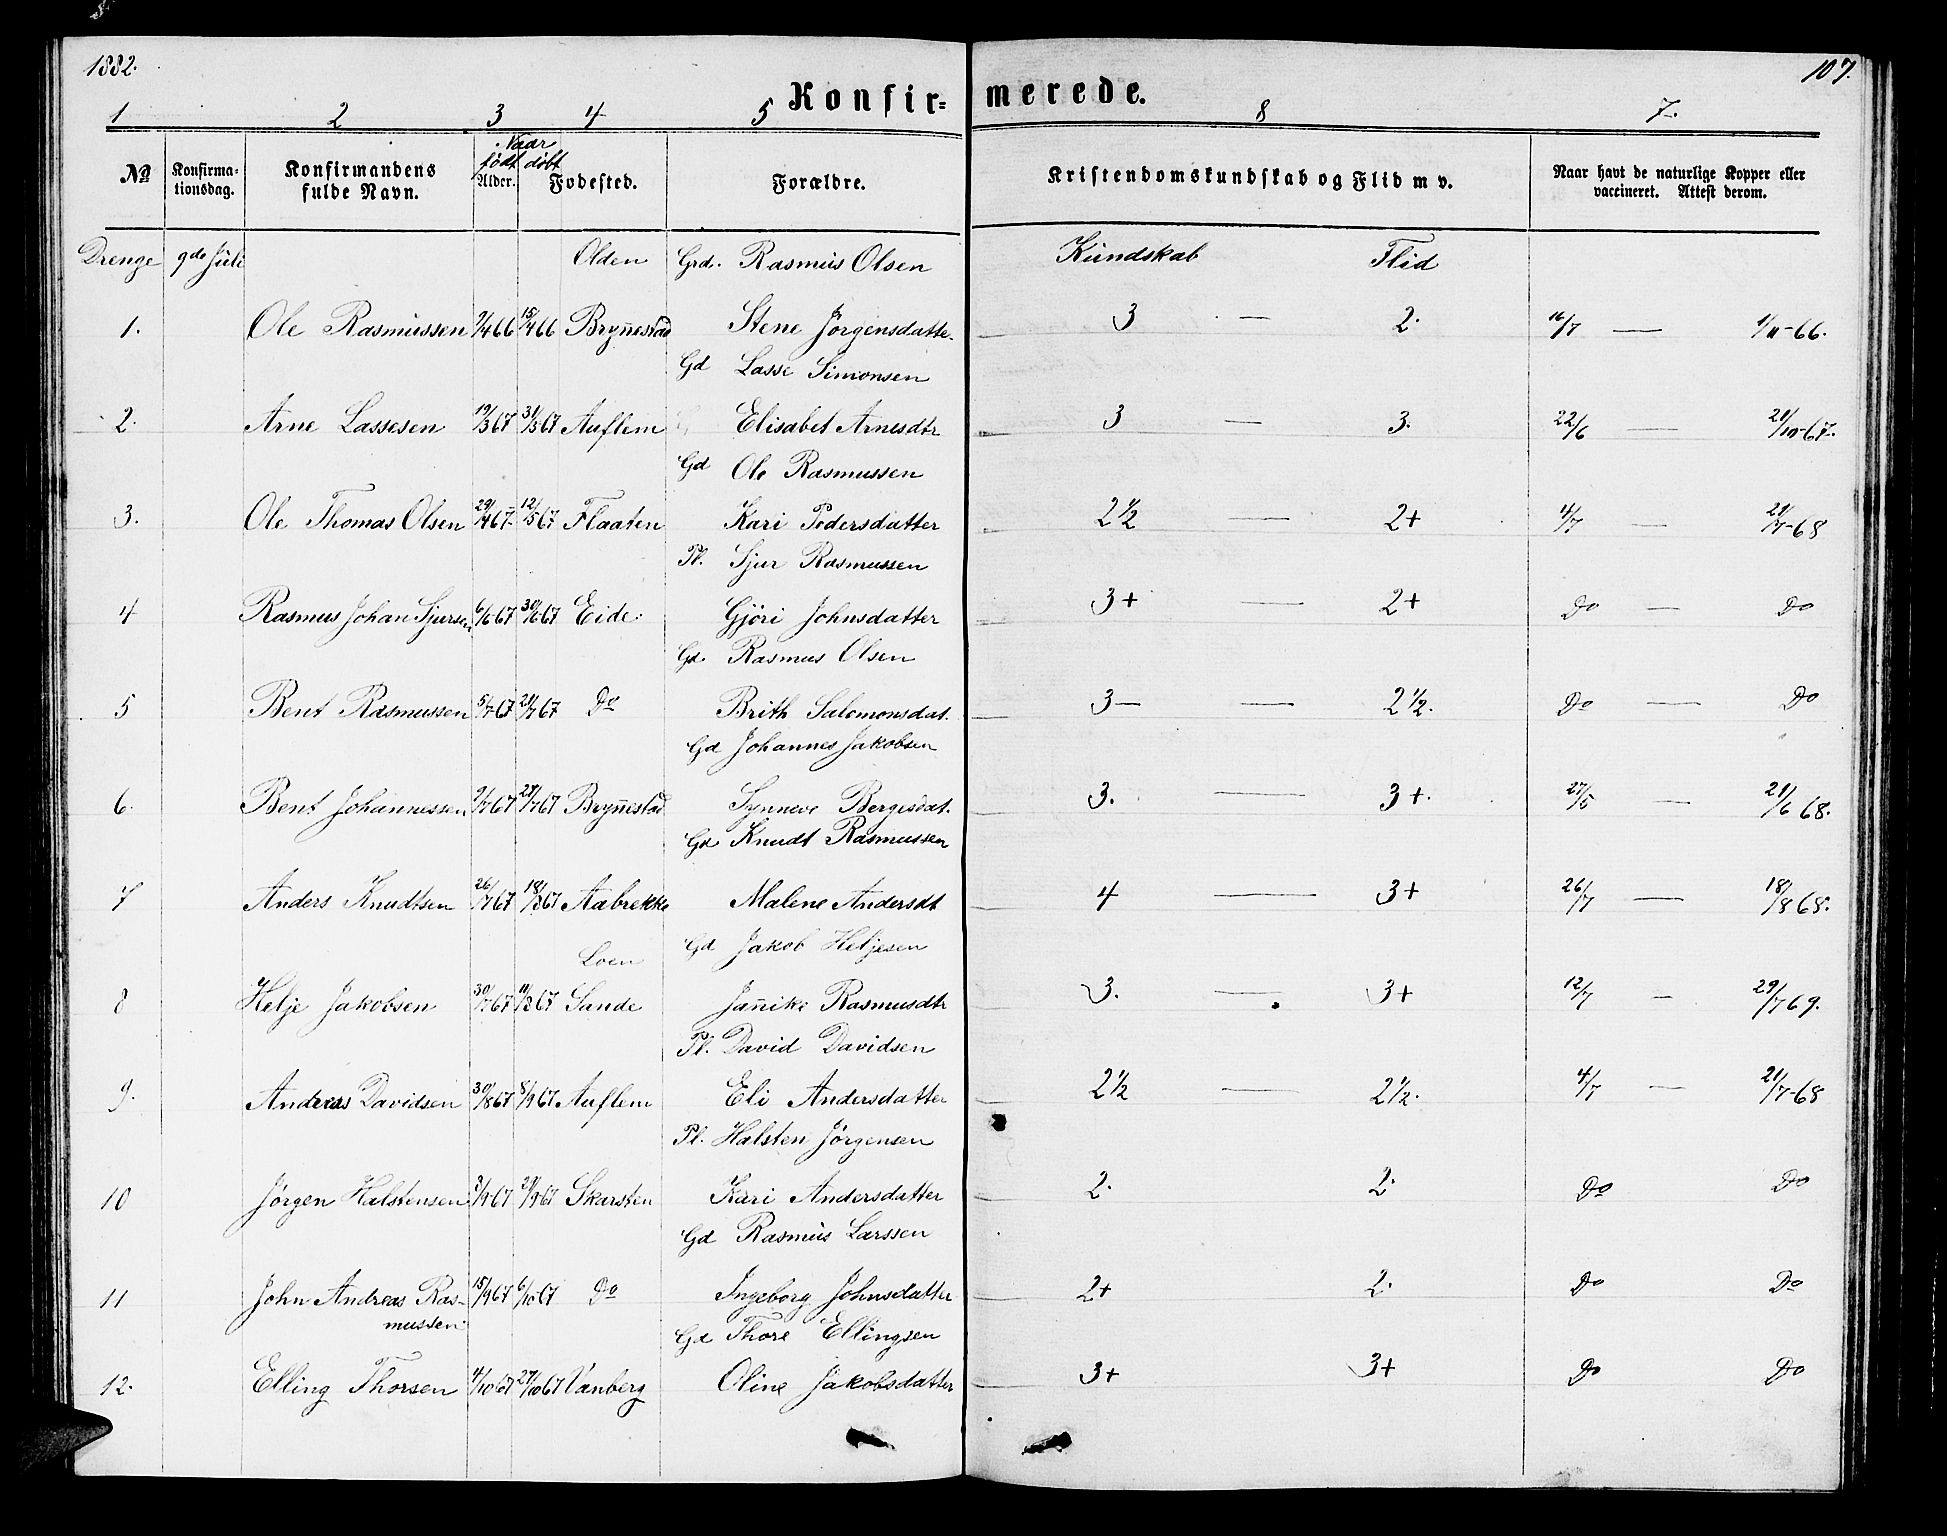 1882.
107.
Konfir- merede.
1 2 3 4 5 8 7.
Naar
født døbt
No Konfirma- Konfirmandens Alder. Fødested. Forældre. Kristendomskundskab og Flid m v. Naar havt de naturlige Kopper eller
tionsdag. fulde Navn. vaccineret. Attest derom.
Drenge 9de Juli Olden Grd. Rasmus Olsen Kundskab Flid
1. Ole Rasmussen 9/4 66 15/4 66 Bryn̄estad Stene Jörgensdatter 3 — 2. 16/7 — 1/11-66.
Gd Lasse Simonsen
2. Arne Lassesen 19/3 67 31/3 67 Auflem Elisabet Arnesdtr 3 — 3. 22/6 — 21/10-67.
Gd Ole Rasmussen
3. Ole Thomas Olsen 29/4 67 12/5 67 Flaaten Kari Pedersdatter 2½ — 2+ 4/7 — 21/7-68
Pl. Sjur Rasmussen
4 Rasmus Johan Sjursen 6/6 67 30/6 67 Eide. Gjöri Johnsdatter 3+ — 2+ Do — Do
Gd. Rasmus Olsen
5 Bent Rasmussen 5/7 67 21/7 67 Do Brith Salomonsdat. 3— — 2½. Do — Do
Gd Johannes Jakobsen
6. Bent Johannessen 9/7 67 28/7 67 Bryn̄estad Synneve Bergesdat. 3. — 3+. 27/5 — 21/6 68.
Gd Knudt Rasmussen
7 Anders Knudtsen 26/7 67 18/8 67 Aabrekke Malene Andersdt 4 — 3+ 26/7 — 18/8 68.
Loen Gd Jakob Heljesen
8 Helje Jakobsen 30/7 67 11/8 67 Sande Jan̄ike Rasmusdtr 3. — 3+ 12/7 — 29/7 69.
Pl. David Davidsen
9. Andreas Davidsen 30/8 67 8/9 67 Auflem Eli Andersdatter 2½ — 2½. 4/7 — 21/7-68
Pl. Halsten Jörgensen
10 Jörgen Halstensen 3/9 67 29/9 67 Skarsten Kari Andersdatter 2. 2. Do Do
Gd Rasmus Larssen
11 John Andreas Ras- 15/9 67 6/10 67 Do Ingeborg Johnsdatter 2+ 2. Do Do
mussen.
Gd Thore Ellingsen
12. Elling Thorsen 4/10 67 27/10 67 Vanberg Oline Jakobsdatter 3+ 3+ Do Do